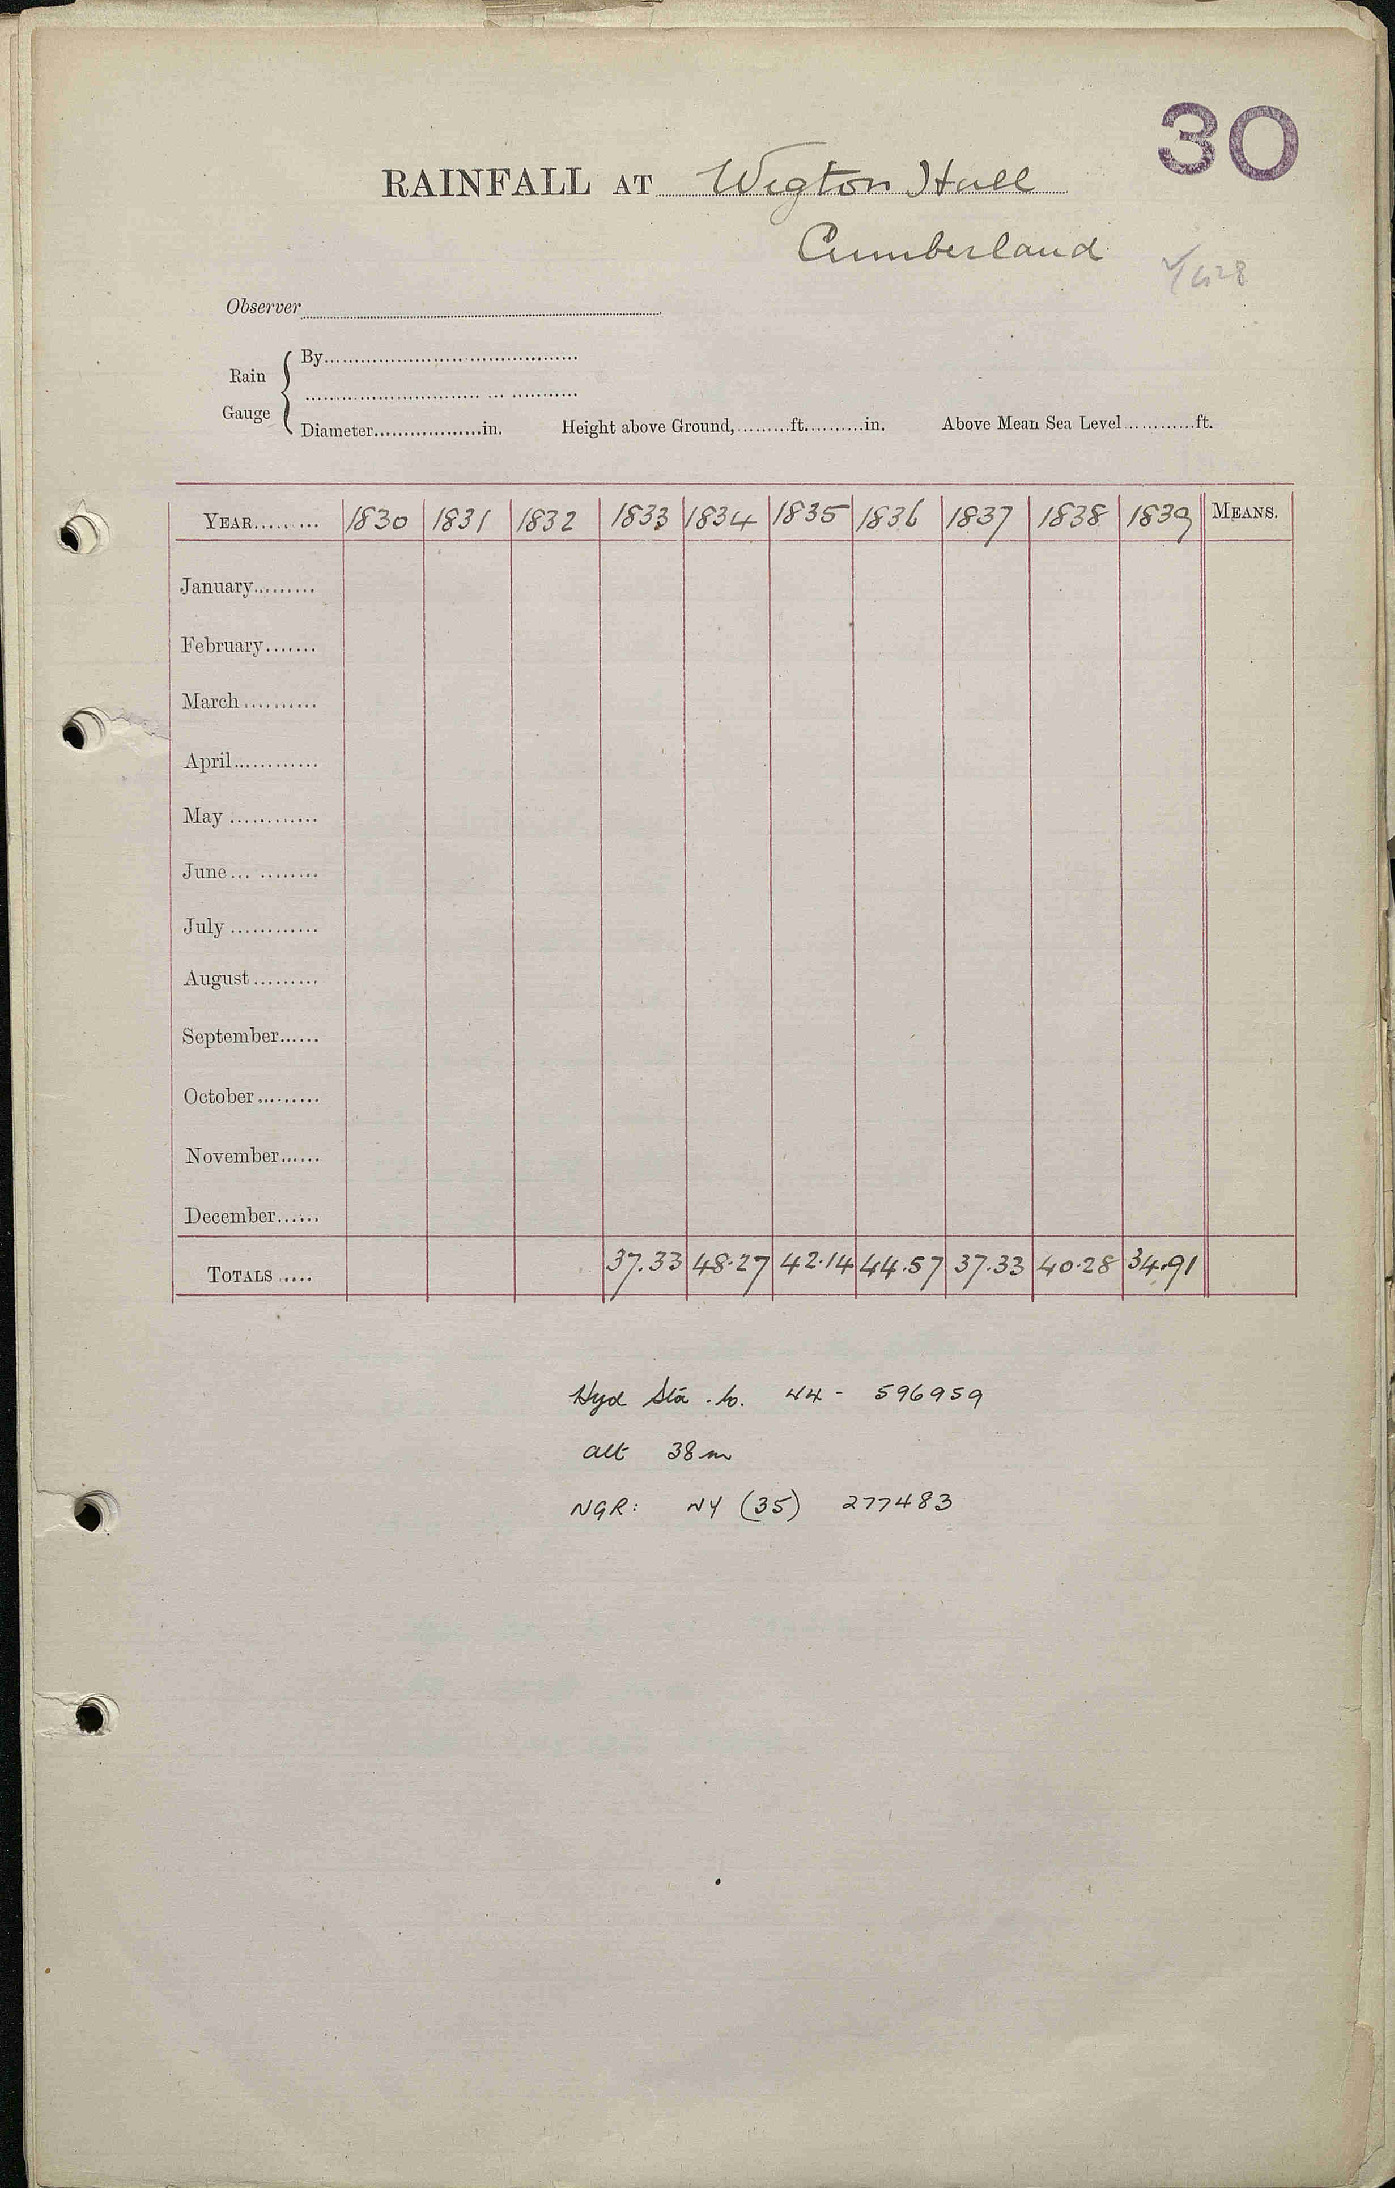 30
RAINFALL AT Wigton Hall
Cumberland
Observer
Rain Gauge
By
Diameter in. Height above Ground, ft. in. Above Mean Sea Level ft.
YEAR 1830 1831 1832 1833 1834 1835 1836 1837 1838 1839 MEANS.
January
February
March
April
May
June
July
August
September
October
November
December
TOTALS 37.33 48.27 42.14 44.57 37.33 40.28 34.91
Hyd Sta. No. 44 - 596959
alt 38m
NGR: NY (35) 277483